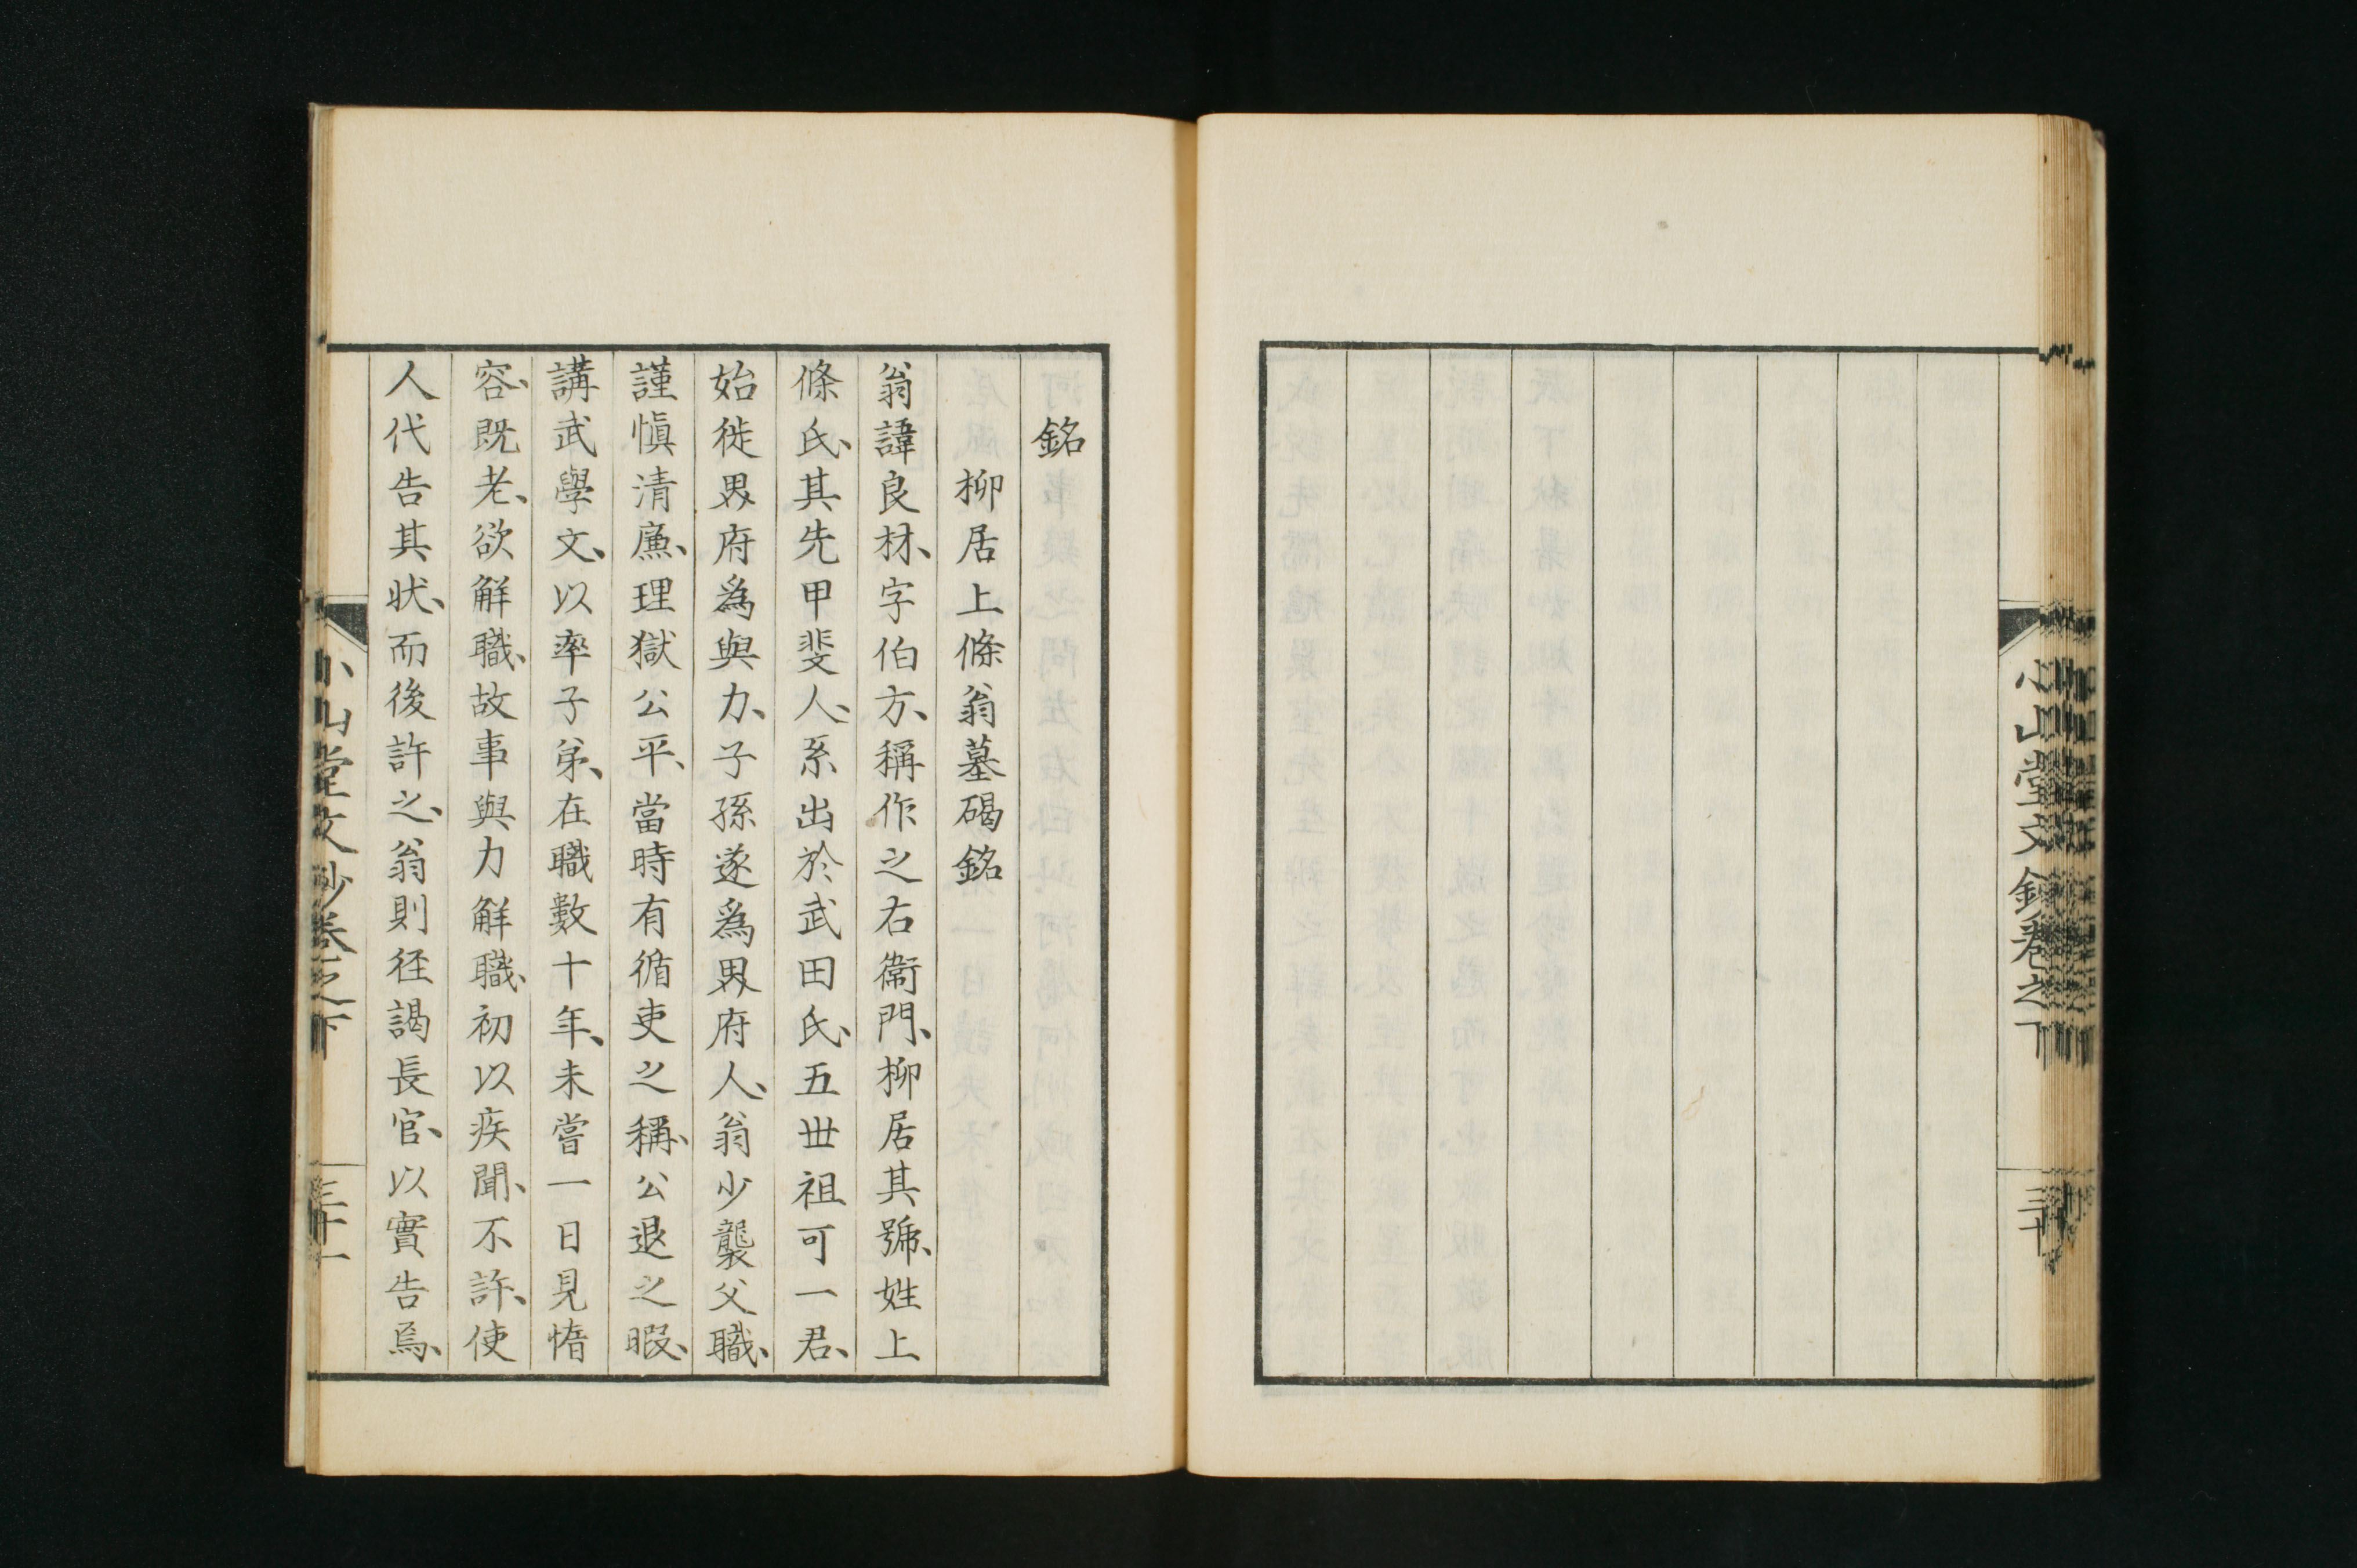 心山堂文鈔卷之下
三十
銘
柳居上條翁墓碣銘
翁諱良材、字伯方、稱作之右衞門、柳居其號、姓上
條氏、其先甲斐人、系出於武田氏、五世祖可一君、
始徙界府爲與力、子孫遂爲界府人、翁少襲父職、
謹愼清廉、理獄公平、當時有循吏之稱、公退之暇、
講武學文、以率子弟、在職數十年、未嘗一日見惰
容、既老、欲解職、故事與力解職、初以疾聞、不許、使
人代告其狀、而後許之、翁則径謁長官、以實告焉、
心山堂文鈔卷之下
三十一